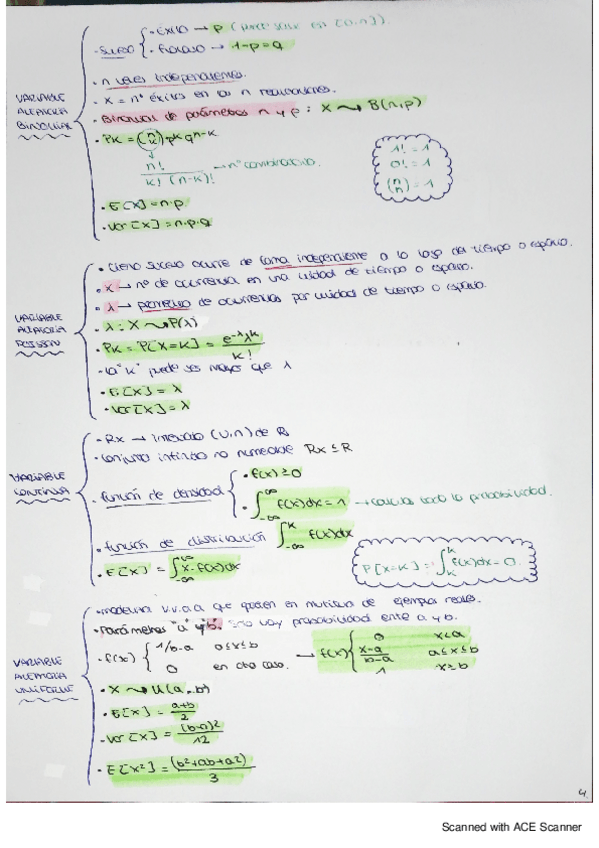 VARIABLE ALEATORIA BINOMIAL
· Suceso
· Éxito → p
· Fracaso → 1-p=q
· n veces independientes.
· X = nº éxitos en las n realizaciones.
· Binomial de parámetros n y p : X ⇝ B(n,p)
· Pk = (n k) · p^k q^n-k
n! / k! (n-k)! → nº combinatorio.
1! = 1
0! = 1
(n n) = 1
· E[X] = n·p
· Var[X] = n·p·q
VARIABLE ALEATORIA POISSON
· Cierto suceso ocurre de forma independiente a lo largo del tiempo o espacio.
· X → nº de ocurrencia en una unidad de tiempo o espacio.
· λ → promedio de ocurrencias por unidad de tiempo o espacio.
· λ : X ⇝ P(λ)
· Pk = P[X=K] = e^-λ λ^k / k!
· La "k" puede ser mayor que λ
· E[X] = λ
· Var[X] = λ
VARIABLE CONTINUA
· Rx → Intervalo (0,n) de R
· Conjunto infinito no numerable Rx ⊆ R
· función de densidad
· f(x) ≥ 0
· ∫_-∞^∞ f(x)dx = 1 → calcular toda la probabilidad.
· función de distribución ∫_-∞^k f(x)dx
· E[X] = ∫_-∞^+∞ x·f(x)dx
P[X=K] = ∫_k^k f(x)dx = 0.
VARIABLE ALEATORIA UNIFORME
· modeliza v.v.a.a que en multitud de ejemplos reales.
· Parámetros "a" y b. Solo hay probabilidad entre a y b.
· f(x) { 1/b-a a≤x≤b
0 en otro caso.
→ f(x) { 0 x<a
x-a / b-a a≤x≤b
1 x≥b
· X ⇝ U(a,b)
· E[X] = a+b / 2
· Var[X] = (b-a)² / 12
· E[X²] = (b²+ab+a²) / 3
4
Scanned with ACE Scanner